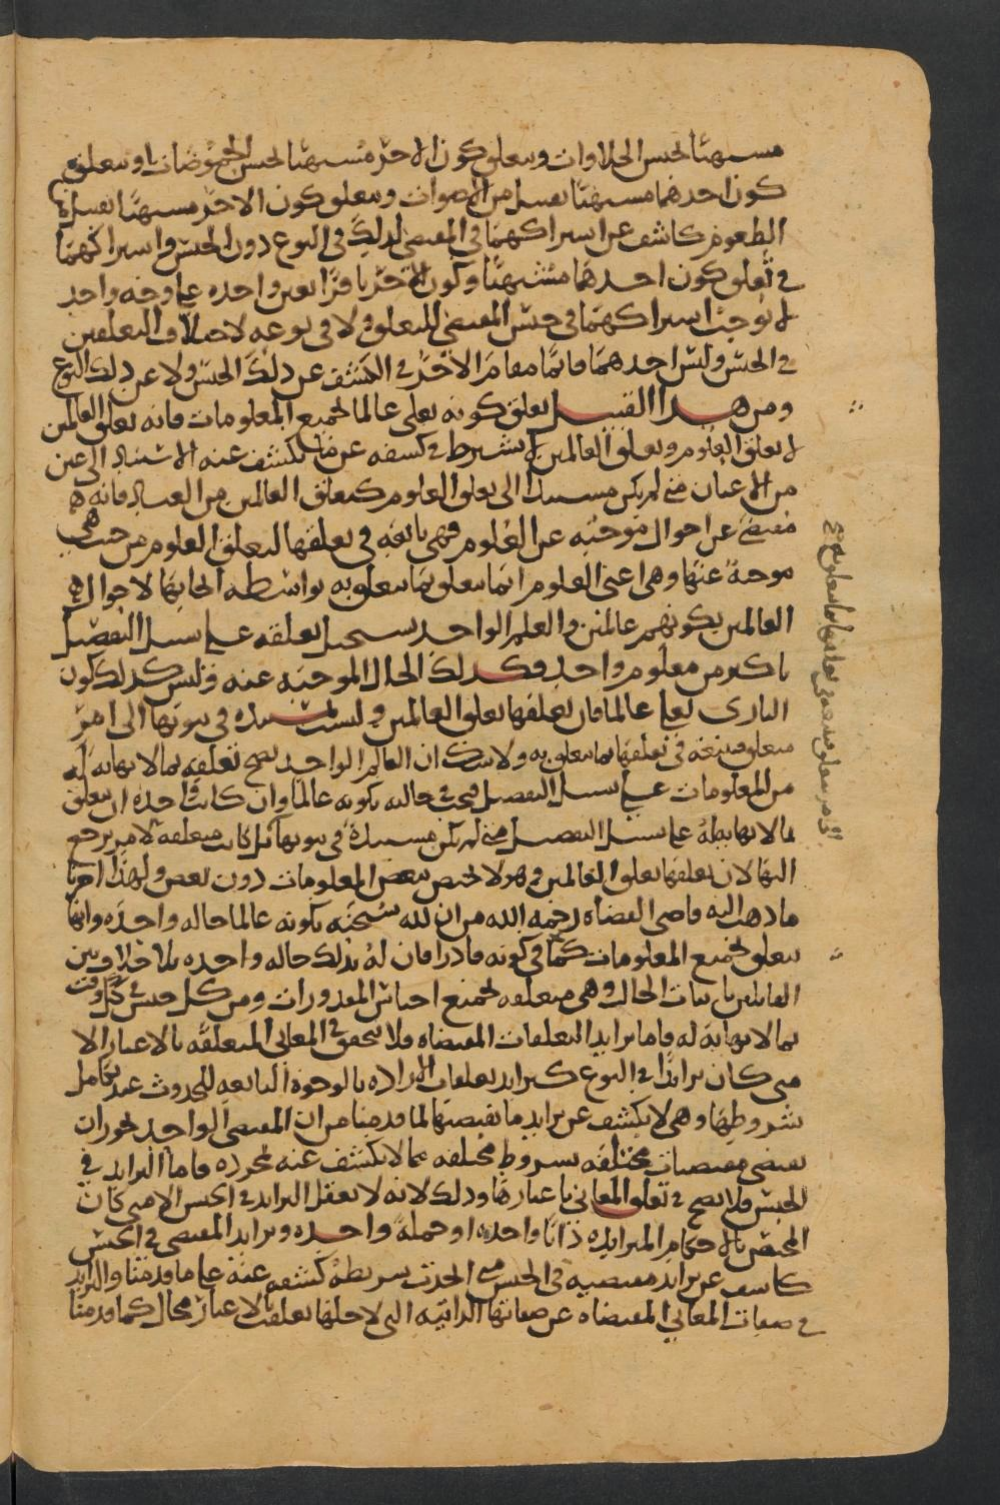 مشتهيًا لجنس الحلاوات وتعلق كون الآخر مشتهيًا لجنس الحموضات او تعلق
كون احدهما مشتهيًا لقبيل من الاصوات وتعلق كون الآخر مشتهيًا لقبيل من
الطعوم كاشف عن اشتراكهما في المقتضي لذلك في النوع دون الجنس واشتراكهما
في تعلق كون احدهما مشتهيًا وكون الآخر نافرًا بعين واحده على وجه واحد
لا يوجب اشتراكهما في جنس المقتضي للتعلق ولا في نوعه لاختلاف التعلقين
في الجنس وليس احدهما قائمًا مقام الآخر في الكشف عن ذلك الجنس ولا عن ذلك النوع
ومن هذا القبيل تعلق كونه تعلى عالما لجميع المعلومات فانه تعلق العالمين
لا تعلق العلوم وتعلق العالمين لا يشترط في كشفه عن ما يكشف عنه الاستناد الى عين
من الاعيان متى لم يكن مستندا الى تعلق العلوم كتعلق العالمين من العباد فانه
مقتضى عن احوال موجبه عن العلوم فهي تابعه في تعلقها لتعلق العلوم من حيث هي
موجبة عنها وهي اعني العلوم انما تتعلق بما تتعلق به بواسطه ايجابها لاحوال
العالمين بكونهم عالمين والعلم الواحد يستحيل تعلقه على سبيل التفصيل
باكثر من معلوم واحد فكذلك الحال الموجبه عنه وليس كذلك كون
الباري تعلى عالما فان تعلقها تعلق العالمين وليست مستنده في ثبوتها الى امر
متعلق فتتبعه في تعلقها بما تتعلق به ولا شك ان العالم الواحد يصح تعلقه بما لا نهايه له
من المعلومات على سبيل التفصيل فصح في حاله بكونه عالما وان كانت واحده ان تتعلق
بما لا نهايه له على سبيل التفصيل متى لم يكن مستندة في ثبوتها بل كانت متعلقه لامر يرجع
اليها لان تعلقها تعلق العالمين وهو لا يختص ببعض المعلومات دون بعض ولهذا اخترنا
ما ذهب اليه قاضي القضاه رحمه الله من ان لله سبحنه بكونه عالما حاله واحده وانها
تتعلق بجميع المعلومات كما في كونه قادرا فان له بذلك حاله واحده بلا خلاف بين
القائلين باثبات الحال وهي متعلقه بجميع اجناس المقدورات ومن كل جنس في كل وقت
بما لا نهايه له فاما تزايد التعلقات المقتضاه فلا يتحقق في المعاني المتعلقه بالاعيان الا
متى كان تزايدًا في النوع كتزايد تعلقات الاراده بالوجوه التابعه للحدوث عند تكامل
شروطها وهي لا يكشف عن تزايد ما يقتضيها لما قدمنا من ان المقتضي الواحد يجوز ان
يقتضي مقتضيات مختلفه بشروط مختلفه مما لا يكشف عنه بمجرده فاما التزايد في
الجنس فلا يصح في تعلق المعاني باعيانها وذلك لانه لا يعقل التزايد في الجنس الا متى كان
المختص بالاحكام المتزايده ذاتًا واحده او جملة واحده وتزايد المقتضى في الجنس
كاشف عن تزايد مقتضيه في الجنس متى اتحدت شريطة كشفه عنه على ما قدمنا والتزايد
في صفات المعاني المقتضاه عن صفاتها الذاتيه التي لاجلها تعلقت بالاعيان محال كما قدمنا